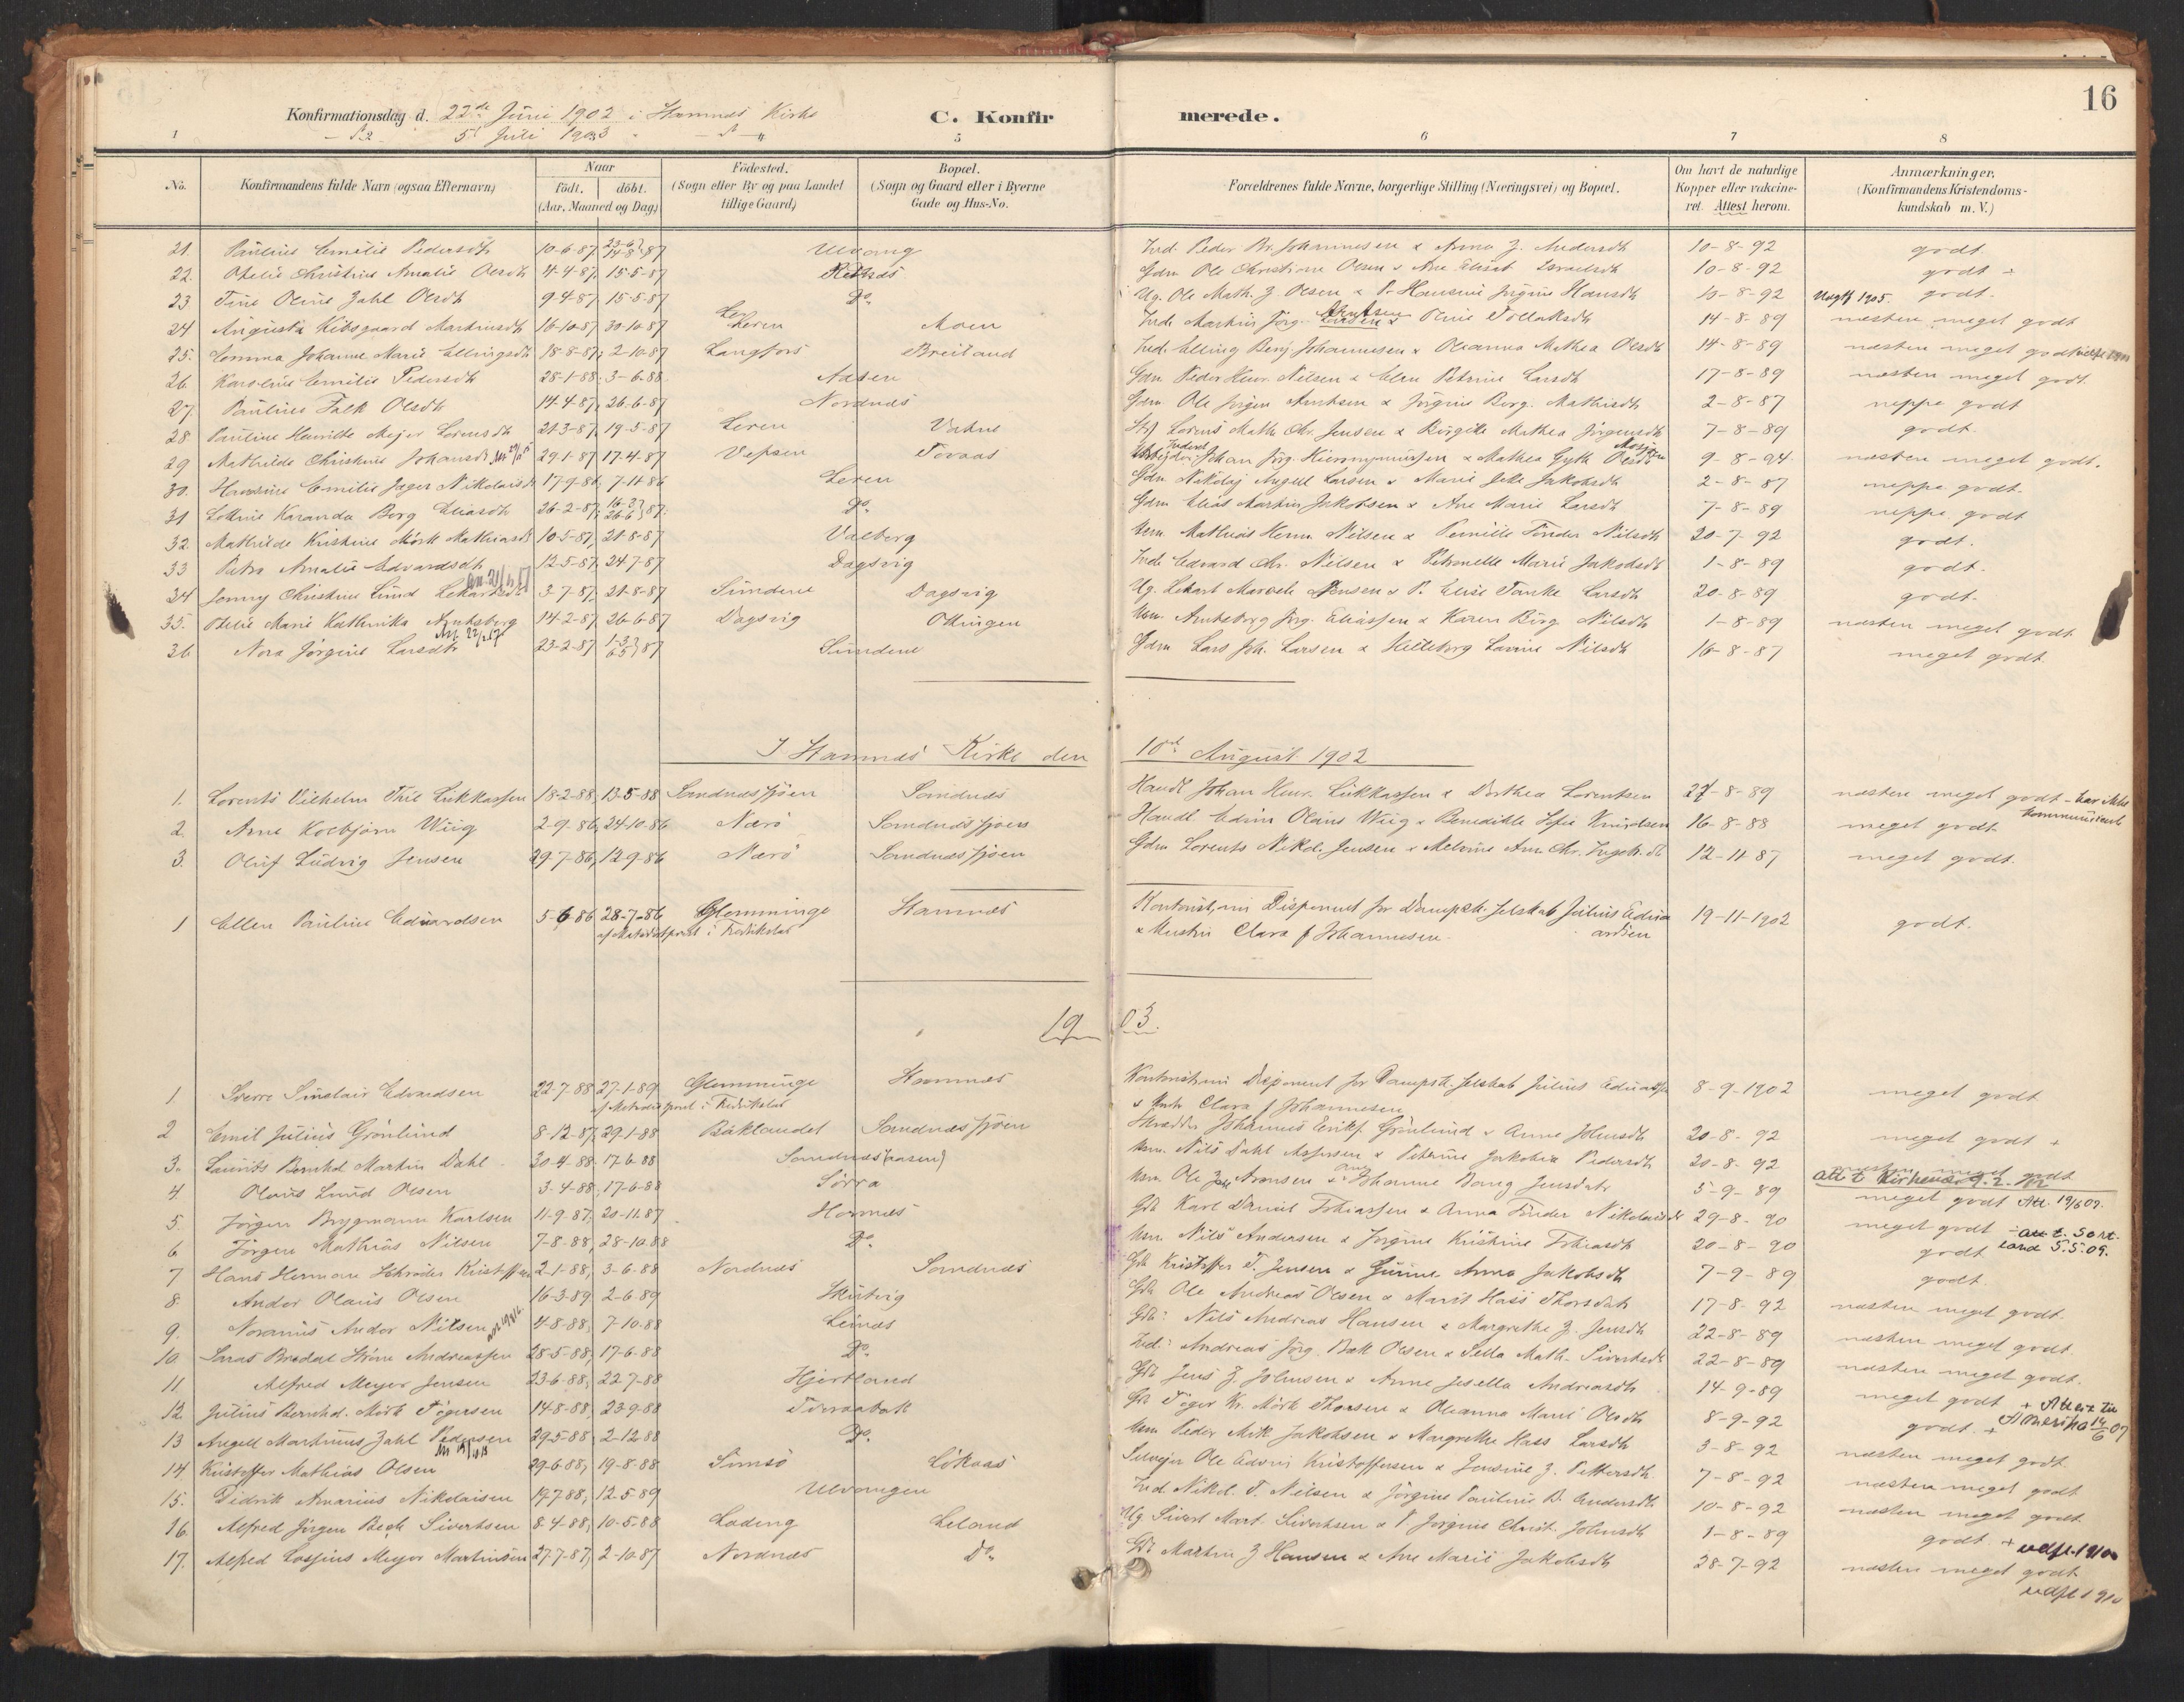 16
Konfirmationsdag d. 22de Juni 1902 i Hamnes Kirke C. Konfirmerede.
5t Juli 1903
1 4 5 6 7 8
No. Konfirmandens fulde Navn (ogsaa Efternavn) Naar födt. döbt. (Aar, Maaned og Dag) Födested. (Sogn eller By og paa Landet tillige Gaard) Bopæl. (Sogn og Gaard eller i Byerne Gade og Hus-No. Forældrenes fulde Navne, borgerlige Stilling (Næringsvei) og Bopæl. Om havt de naturlige Kopper eller vakcineret. Attest herom. Anmærkninger. (Konfirmandens Kristendomskundskab m. V.)
21. Pauline Emilie Pedersdtr 10-6-87 23-6 14-8 87 Ulvang Ind. Peder Br. Johannesen & Anna Z. Andersdtr 10-8-92 godt.
22. Otelie Christine Amalie Olsdtr 4-4-87 15-5-87 Gdm Ole Christian Olsen & Ane Elisab. Israelsdtr 10-8-92 godt +
23. Tine Oline Zahl Olsdtr 9-4-87 15-5-87 Do. Ug. Ole Math. Z Olsen & P. Hansine Jørgine Hansdtr 10-8-92 Udgtf 1905. godt.
24 Augusta Kibsgaard Martinsdtr 16-10-87 30-10-87 Leren Moen Inds Martin Jörg. Arntsen & Oline Tollaksdtr 14-8-89 næsten meget godt
25. Emma Johanne Marie Ellingsdtr 18-8-87 2-10-87 Langfors Breiland Ind. Elling Benj. Johannesen & Oleanna Mathea Olsdtr 14-8-89 næsten meget godt
26. Karoline Emilie Pedersdtr 28-1-88 3-6-88 Aasen Gdm Peder Henr. Nilsen & Elen Petrine Larsdtr 17-8-89 næsten meget godt.
27. Pauline Falk Olsdtr 14-4-87 26-6-87 Nordnes Gdm. Ole Jørgen Arntsen & Jörgine Berg. Mathisdtr 2-8-87 neppe godt
28 Pauline Henrikke Mejer Lorensdtr 21-3-87 19-5-87 Leren Lorens Math. Chr. Jensen & Birgitte Mathea Jørgensdtr 7-8-89 godt.
29 Mathilde Christine Johansdtr 29-1-87 17-4-87 Vefsen Toraas Arbejder Johan Jörg. Hieronymussen & Mathea Gyth Olsdtr 9-8-94 næsten meget godt.
30. Hansine Emilie Jæger Nikolaisdtr 17-9-86 7-11-86 Leren Gdm Nikolaj Angell Larsen & Marie Jakobsdtr 2-8-87 neppe godt.
31 Lottine Karanda Berg Eliasdtr 26-2-87 16-3 26-6 87 Do. Gdm Elias Martin Jakobsen & Ane Marie Larsdtr 7-8-89 neppe godt
32. Mathilde Kristine Mörk Mathiasdtr 10-5-87 21-8-87 Valberg Usm. Mathias Herm. Nilsen & Pernille Tönder Nilsdtr 20-7-92 godt.
33 Petra Amalie Edvardsdtr 12-5-87 24-7-87 Dagsvig Inds Edvard Chr. Nilsen & Petronelle Marie Jakobsdtr 1-8-89 godt.
34 Jenny Christine Lund Lekartsdtr 3-7-87 21-8-87 Sundene Dagsvig Ug. Lekart Marcel. Jensen & P. Elise Tanke Larsdtr 20-8-89 godt.
35. Otelie Marie Kathrinka Arntsberg 14-2-87 26-6-87 Dagsvig Ottingen Usm. Arntsberg Jörg. Eliassen & Karen Birg. Nilsdtr 1-8-89 næsten meget godt
36 Nora Jörgine Larsdtr 23-2-87 1-3 6-5 87 Sundene Gdm Lars Joh. Larsen & Hilleborg Lavine Nilsdtr 16-8-87 meget godt.
I Hamnes Kirke den 10de August 1902
1. Lorents Vilhelm Thil Lukkassen 18-2-88 13-5-88 Sandnessjöen Sandnes Handl. Johan Henr. Lukkassen & Dorthea Lorentsen 27-8-89 næsten meget godt - har ikke kommunicent
2. Arne Korbjørn Wiig 2-9-86 24-10-86 Nærö Sandnessjöen Handl. Edvin Olaus Wiig & Benedikte Sofie Knudsen 16-8-88 meget godt.
3. Oluf Ludvig Jensen 29-7-86 12-9-86 Nærö Sandnessjöen Gdm Lorents Nikol. Jensen & Meline Ann. Chr. 12-11-87 meget godt.
1 Ellen Pauline Edvardsen 5-6-86 28-7-86 Glemminge Hamnes Kontorist, nu Disponent for Dampsk. selskab Julius Edvardsen 19-11-1902 godt.
af Metodistprest i Fredrikstad & Hustru Clara f Johannesen.
1903.
1 Sverre Sinclair Edvardsen 22-7-88 27-1-89 Glemminge Hamnes Kontorist nu Disponent for Dampsk. selskab Julius Edvardsen 8-9-1902 meget godt
af Metodistprest i Fredrikstad & Hustr Clara f Johannesen
2 Emil Julius Grönlund 8-12-87 29-1-88 Baklandet Sandnessjöen Skrædder Johannes Eriks. Grönlund & Anne Johnsdtr 20-8-92 meget godt +
3. Laurits Bernhd. Martin Dahl 30-4-88 17-6-88 Sandnes (aasen) Usm. Nils Dahl Aspersen & Petrine Jakobea Pedersdtr 20-8-92 næsten meget godt
4 Olaus Lund Olsen 3-4-88 17-6-88 Sörra Usm Ole Aronsen & Johanne Bang Jensdatr 5-9-89 att t. Kirkenes 9.2.12
5. Jörgen Brygmann Karlsen 11-9-87 20-11-87 Hamnes Gdb Karl Daniel Tobiassen & Anna Tönder Nikolaisdtr 29-8-90 meget godt Att. 19/6 07.
6 Jörgen Mathias Nilsen 7-8-88 28-10-88 Do. Usm. Nils Andersen & Jörgine Kristine Tobiasdtr 20-8-90 meget godt - att t. Sortland 5.5.09.
7 Hans Herman Schröder Kristoffersen 2-1-88 3-6-88 Nordnes Sandnes Gdb Kristoffer T. Jensen & Gurine Anna Jakobsdtr 7-9-89 godt
8. Andor Olaus Olsen 16-3-89 2-6-89 Skutvig Gdb Ole Andreas Olsen & Marit Hass Thorsdatr 17-8-92 godt.
9. Noranus Andor Nilsen 4-8-88 7-10-88 Leines Gdb. Nils Andreas Hansen & Margrethe Z. Jensdtr 22-8-89 næsten meget godt.
10. Laras Bredal Ström Andreassen 28-5-88 17-6-88 Do. Ind. Andreas Jörg. Bak Olsen & Sella Math. Sivertsdtr 22-8-89 næsten meget godt.
11. Alfred Meyer Jensen 23-6-88 22-7-88 Hjertland Gdb Jens Z. Johnsen & Anne Jesella Andreasdtr 14-9-89 næsten meget godt.
12. Julius Bernhd. Mörk Tögersen 14-8-88 23-9-88 Toraabak Gdb Töger Kr. Mörk Thorsen & Oleanna Marie Olsdtr 8-9-92 meget godt + Attest til Amerika 14/6 07
13 Angell Martinus Zahl Pedersen 29-5-88 2-12-88 Do. Usm Peder Mik Jakobsen & Margrethe Hass Larsdtr 3-8-92 godt. +
14 Kristoffer Mathias Olsen 29-6-88 19-8-88 Simsö Lökaas Selvejer Ole Edvin Kristoffersen & Jensine Z. Pettersdtr. 7-8-92 næsten meget godt.
15. Didrik Amarius Nikolaisen 17-7-88 12-5-89 Ulvangen Ind. Nikol. T. Nilsen & Jörgine Pauline B. Andersdtr. 10-8-92 næsten meget godt
16. Alfred Jörgen Bech Sivertsen 8-4-88 10-5-88 Lading Leland Ug Sivert Mart. Sivertsen & P. Jörgine Christ. Johnsdtr 1-8-89 næsten meget godt
17. Alfred Lossius Meyer Martinsen 27-7-87 2-10-87 Nordnes Do. Gdb Martin Z Hansen & Ane Marie Jakobsdtr 28-7-92 godt + udfl. 1910
næsten meget godt
udfl 1910